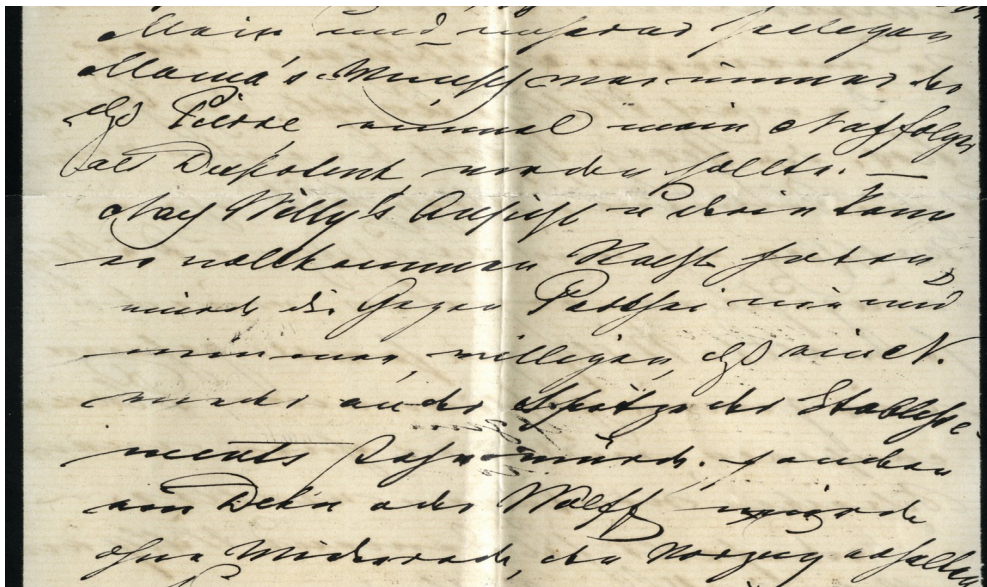 Main und unserer seeligen
Mama's Wunsch war immer der
daß Pierre einmal mein Nachfolger
als Disponent werden sollte. —
Nach Willy's Ansicht u darin kann
er vollkommen Recht haben,
würde die Gegen Parthei nie und
nimmer, willigen, daß ein N.
wieder an der Spitze der Etablisse-
ments stehen würde. sondern
ein Dehn oder Wolff würde
ohne Widerrede, den Vorzug erhalten